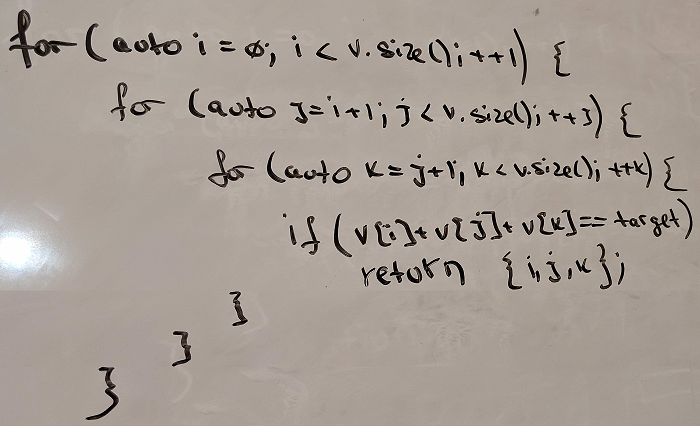 for (auto i = 0; i < v.size(); ++i) {
for (auto j=i+1; j < v.size(); ++j) {
for (auto k = j+1; k < v.size(); ++k) {
if (v[i]+v[j]+v[k]==target)
return {i,j,k};
}
}
}